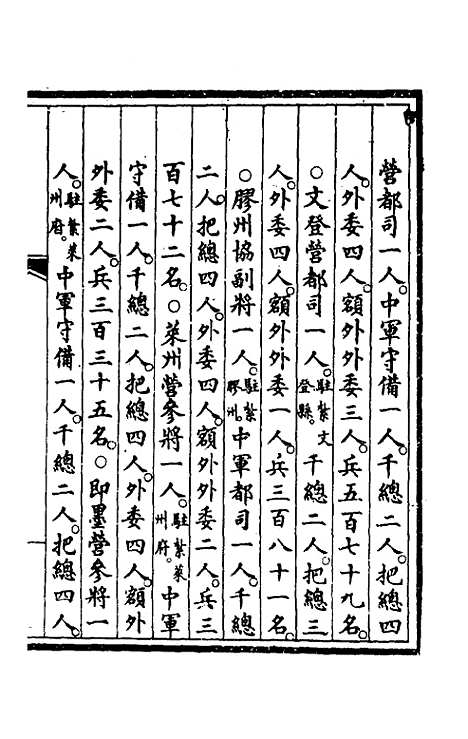 營都司一人。中軍守備一人。千總二人。把總四
人。外委四人。額外外委三人。兵五百七十九名。
○文登營都司一人。駐紮文登縣。千總二人。把總三
人。外委四人。額外外委一人。兵三百八十一名。
○膠州協副將一人。駐紮膠州。中軍都司一人。千總
二人。把總四人。外委四人。額外外委二人。兵三
百七十二名。○萊州營參將一人。駐紮萊州府。中軍
守備一人。千總二人。把總四人。外委四人。額外
外委二人。兵三百三十五名。○即墨營參將一
人。駐紮萊州府。中軍守備一人。千總二人。把總四人。